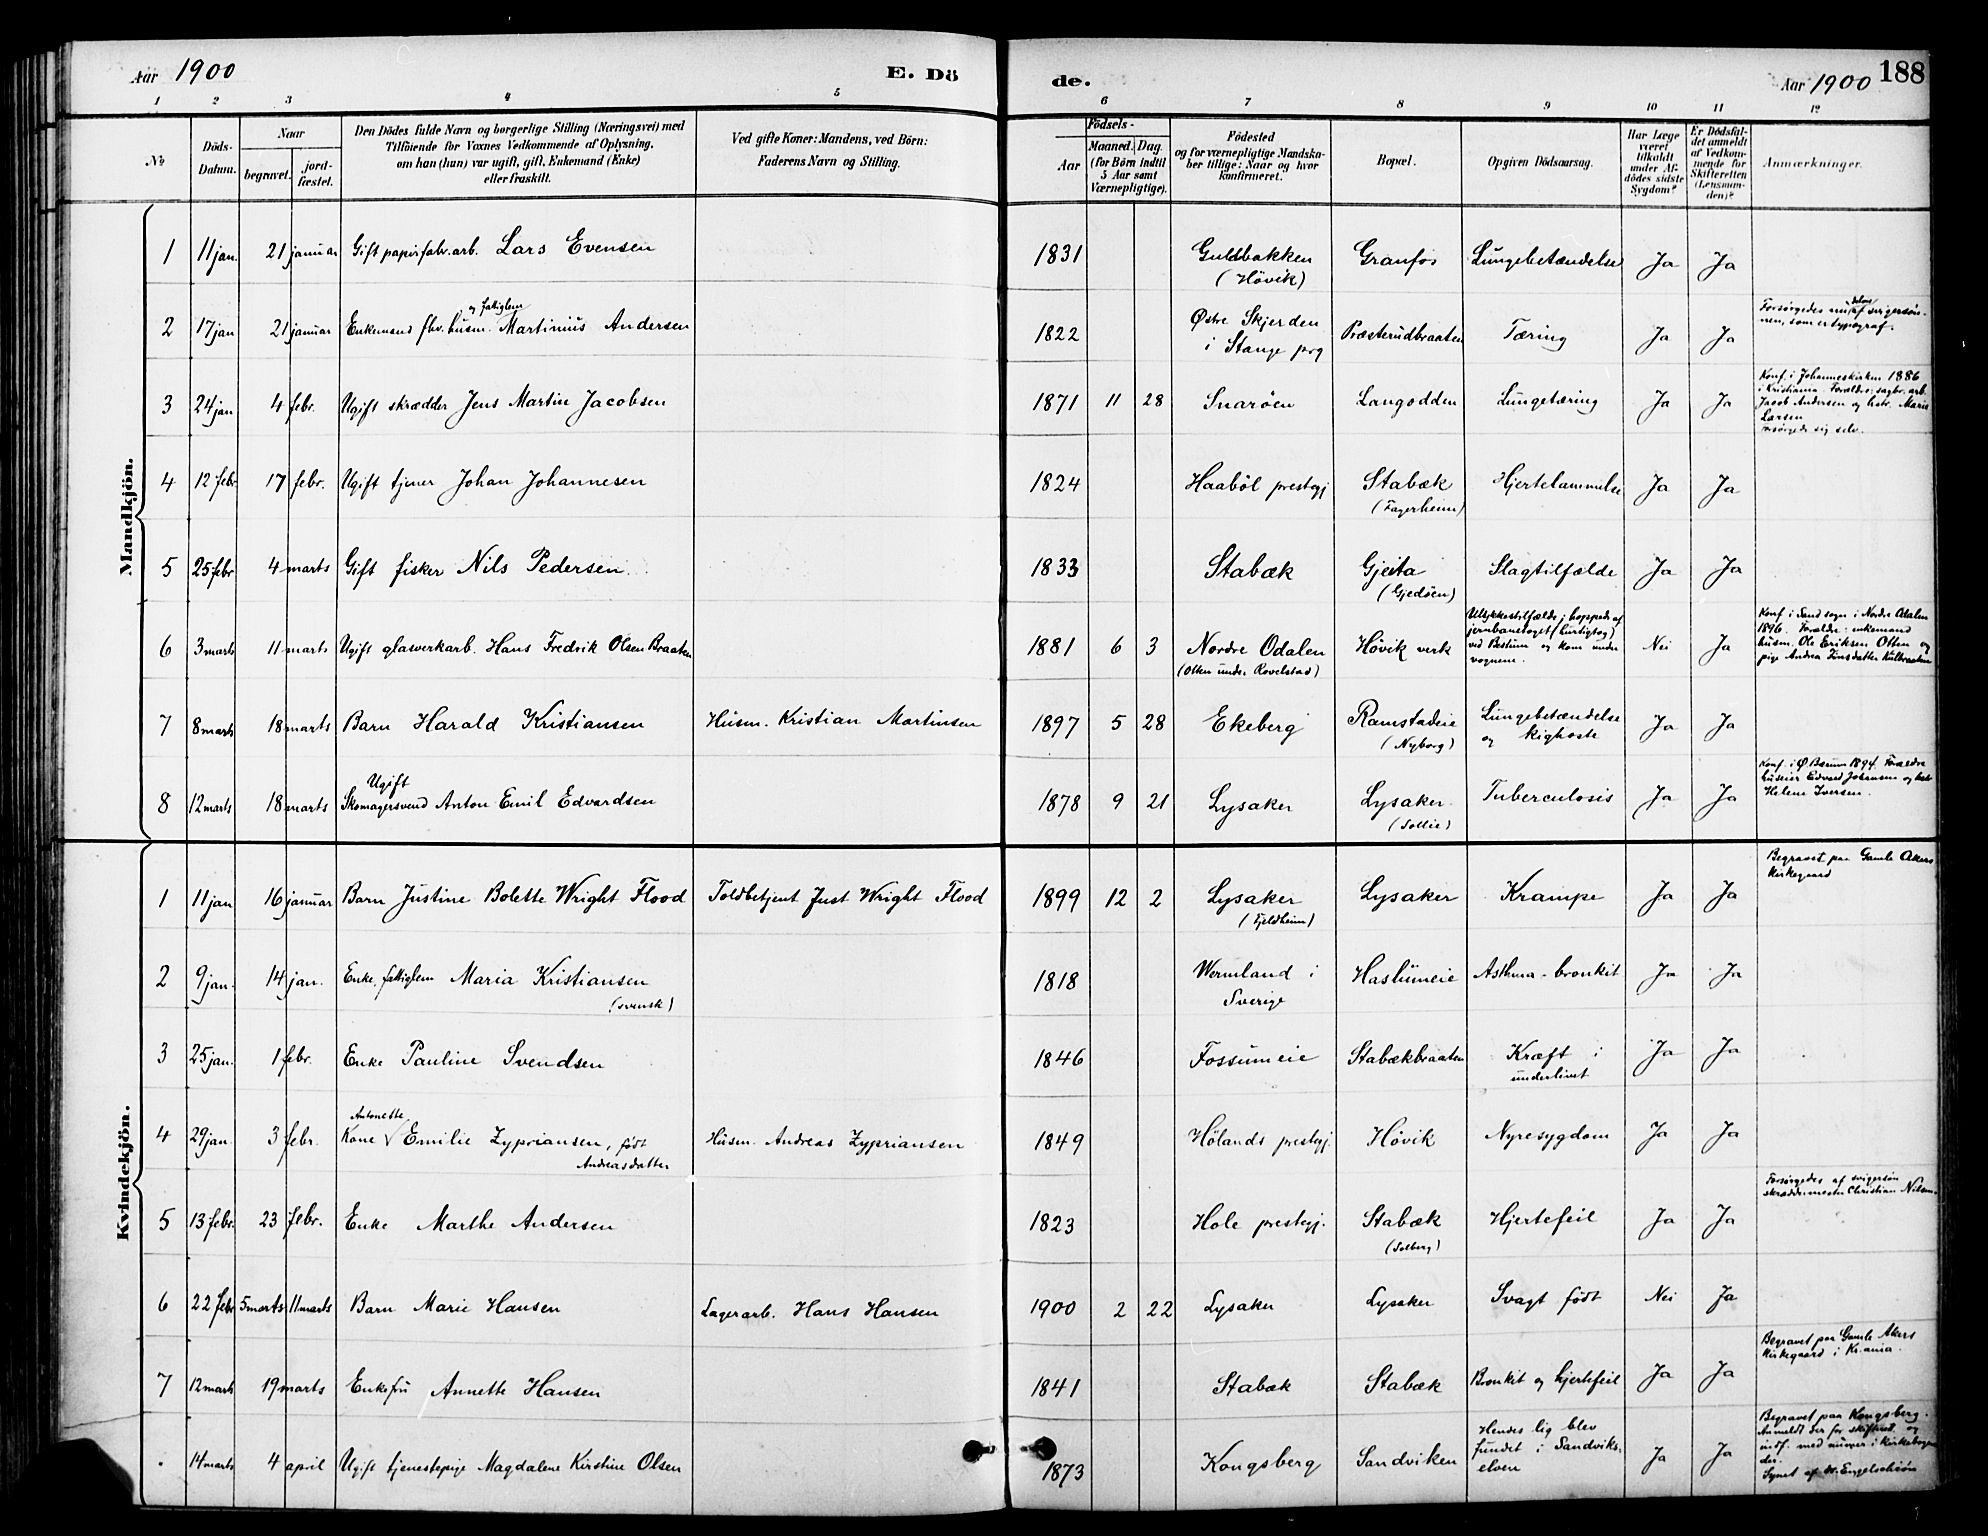 Aar 1900
E. Dö
de.
Aar 1900
188
1 2 3 4 5 6 7 8 9 10 11 12
No
Döds-Datum.
Naar
begravet.
jord-fæstet.
Den Dödes fulde Navn og borgerlige Stilling (Næringsvei) med
Tilföiende for Voxnes Vedkommende af Oplysning,
om han (hun) var ugift, gift, Enkemand (Enke)
eller fraskilt.
Ved gifte Koner: Mandens, ved Börn:
Faderens Navn og Stilling.
Födsels-
Aar
Maaned. Dag.
(for Börn indtil
5 Aar samt
Værnepligtige).
Födested
og for værnepligtige Mandska-
ber tillige: Naar og hvor
konfirmeret.
Bopæl.
Opgiven Dödsaarsag.
Har Læge
været
tilkaldt
under Af-
dödes sidste
Sygdom?
Er Dödsfal-
det anmeldt
af Vedkom-
mende for
Skifteretten
(Lensman-
den)?
Anmærkninger.
Mandkjön.
1 11 jan. 21 januar Gift papirfabr.arb. Lars Evensen 1831 Guldbakken (Hövik) Granfos Lungebetændelse Ja Ja
2 17 jan 21 januar Enkemand fhv. husm. og fattiglem Martinius Andersen 1822 Østre Skjerden i Stange prg Præsterudbraaten Tæring Ja Ja
som er typograf.
3 24 jan 4 febr. Ugift skrædder Jens Martin Jacobsen 1871 11 28 Snarøen Langodden Lungetæring Ja Ja
Konf. i Johanneskirken 1886
i Kristiania. Forældre: sagbr. arb.
Jacob Andersen og hstr. Marie
Larsen
forsørgede sig selv.
4 12 febr 17 febr. Ugift tjener Johan Johannesen 1824 Haaböl prestegj Stabæk (Fagerheim) Hjertelammelse Ja Ja
5 25 febr 4 marts Gift fisker Nils Pedersen 1833 Stabæk Gjeita (Gjedöen) Slagtilfælde Ja Ja
6 3 marts 11 marts Ugift glasverkarb. Hans Fredrik Olsen Braaten 1881 6 3 Nordre Odalen (Olten under Rovelstad) Hövik verk
Ulykkestilfælde; hoppede af
jernbanetoget (hurtigtog)
ved Bestum og kom under
vognene.
Nei Ja
Konf. i Sand sogn i Nordre Odalen
1896. Forældre: enkemand
husm. Ole Eriksen Olten og
pige Andrea Jensdatter Kulbraaten
7 8 marts 18 marts Barn Harald Kristiansen Husm. Kristian Martinsen 1897 5 28 Ekeberg Ramstadeie (Nyborg) Lungebetændelse og kighoste Ja Ja
8 12 marts 18 marts Ugift Skomagersvend Anton Emil Edvardsen 1878 9 21 Lysaker Lysaker (Sollie) Tuberculosis Ja Ja
Konf. i Ø Bærum 1894. Forældre
huseier Edvard Johansen og hstr
Helene Iversen.
Kvindekjön.
1 11 jan 16 januar Barn Justine Bolette Wright Flood Toldbetjent Just Wright Flood 1899 12 2 Lysaker (Fjeldheim) Lysaker Krampe Ja Ja
Begravet paa Gamle Akers
Kirkegaard
2 9 jan. 14 jan. Enke, fattiglem Maria Kristiansen (svensk) 1818 Wermland i Sverige Haslumeie Asthma-bronkit Ja Ja
3 25 jan. 1 febr. Enke Pauline Svendsen 1846 Fossumeie Stabækbraaten Kræft i underlivet Ja Ja
4 29 jan. 3 febr. Kone Antonette Emilie Zypriansen, født Andreasdatter Husm. Andreas Zypriansen 1849 Hölands prestegj. Hövik Nyresygdom Ja Ja
5 13 febr. 23 febr. Enke Marthe Andersen 1823 Hole prestegj. Stabæk (Solberg) Hjertefeil Ja Ja
Forsørgedes af svigersön
skræddermester Christian Nilsen.
6 22 febr 5 marts 11 marts Barn Marie Hansen Lagerarb. Hans Hansen 1900 2 22 Lysaker Lysaker Svagt født Nei Ja
7 12 marts 19 marts Enkefru Annette Hansen 1841 Stabæk Stabæk Bronkit og hjertefeil Ja Ja
Begravet paa Gamle Akers
Kirkegaard i Kr.ania.
14 marts 4 april Ugift tjenestepige Magdalene Kirstine Olsen 1873 Kongsberg Sandviken
Hendes lig blev
fundet i Sandviks-
elven
Ja Ja
Begravet paa Kongsberg.
Anmeldt der for skifteret og
indf. med numer i kirkebogen
der.
Synet af dr. Engelschiön